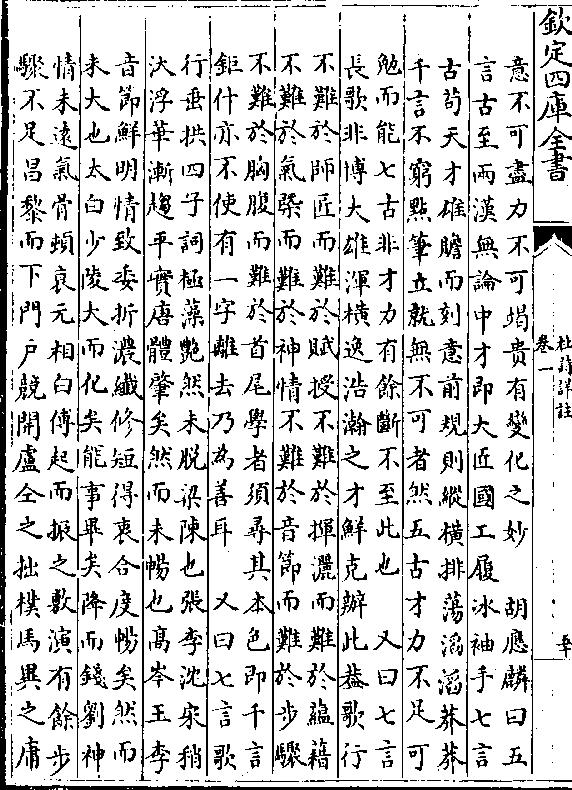 欽定四庫全書
杜詩詳註
卷一
意不可盡力不可竭貴有變化之妙　胡應麟曰五
言古至兩漢無論中才即大匠國工履冰袖手七言
古苟天才雄贍而刻意前規則縱橫排蕩滔滔莽莽
千言不窮點筆立就無不可者然五古才力不足可
勉而能七古非才力有餘斷不至此也　又曰七言
長歌非博大雄渾橫逸浩瀚之才鮮克辦此葢歌行
不難於師匠而難於賦授不難於揮灑而難於藴藉
不難於氣槩而難於神情不難於音節而難於步驟
不難於胸腹而難於首尾學者須尋其本色即千言
鉅什亦不使有一字離去乃為善耳　又曰七言歌
行垂拱四子詞極藻艷然未脱梁陳也張李沈宋稍
汰浮華漸趨平實唐體肇矣然而未暢也髙岑王李
音節鮮明情致委折濃纖修短得衷合度暢矣然而
未大也太白少陵大而化矣能事畢矣降而錢劉神
情未遠氣骨頓衰元相白傅起而振之敷演有餘步
驟不足昌黎而下門户競開盧仝之拙樸馬異之庸